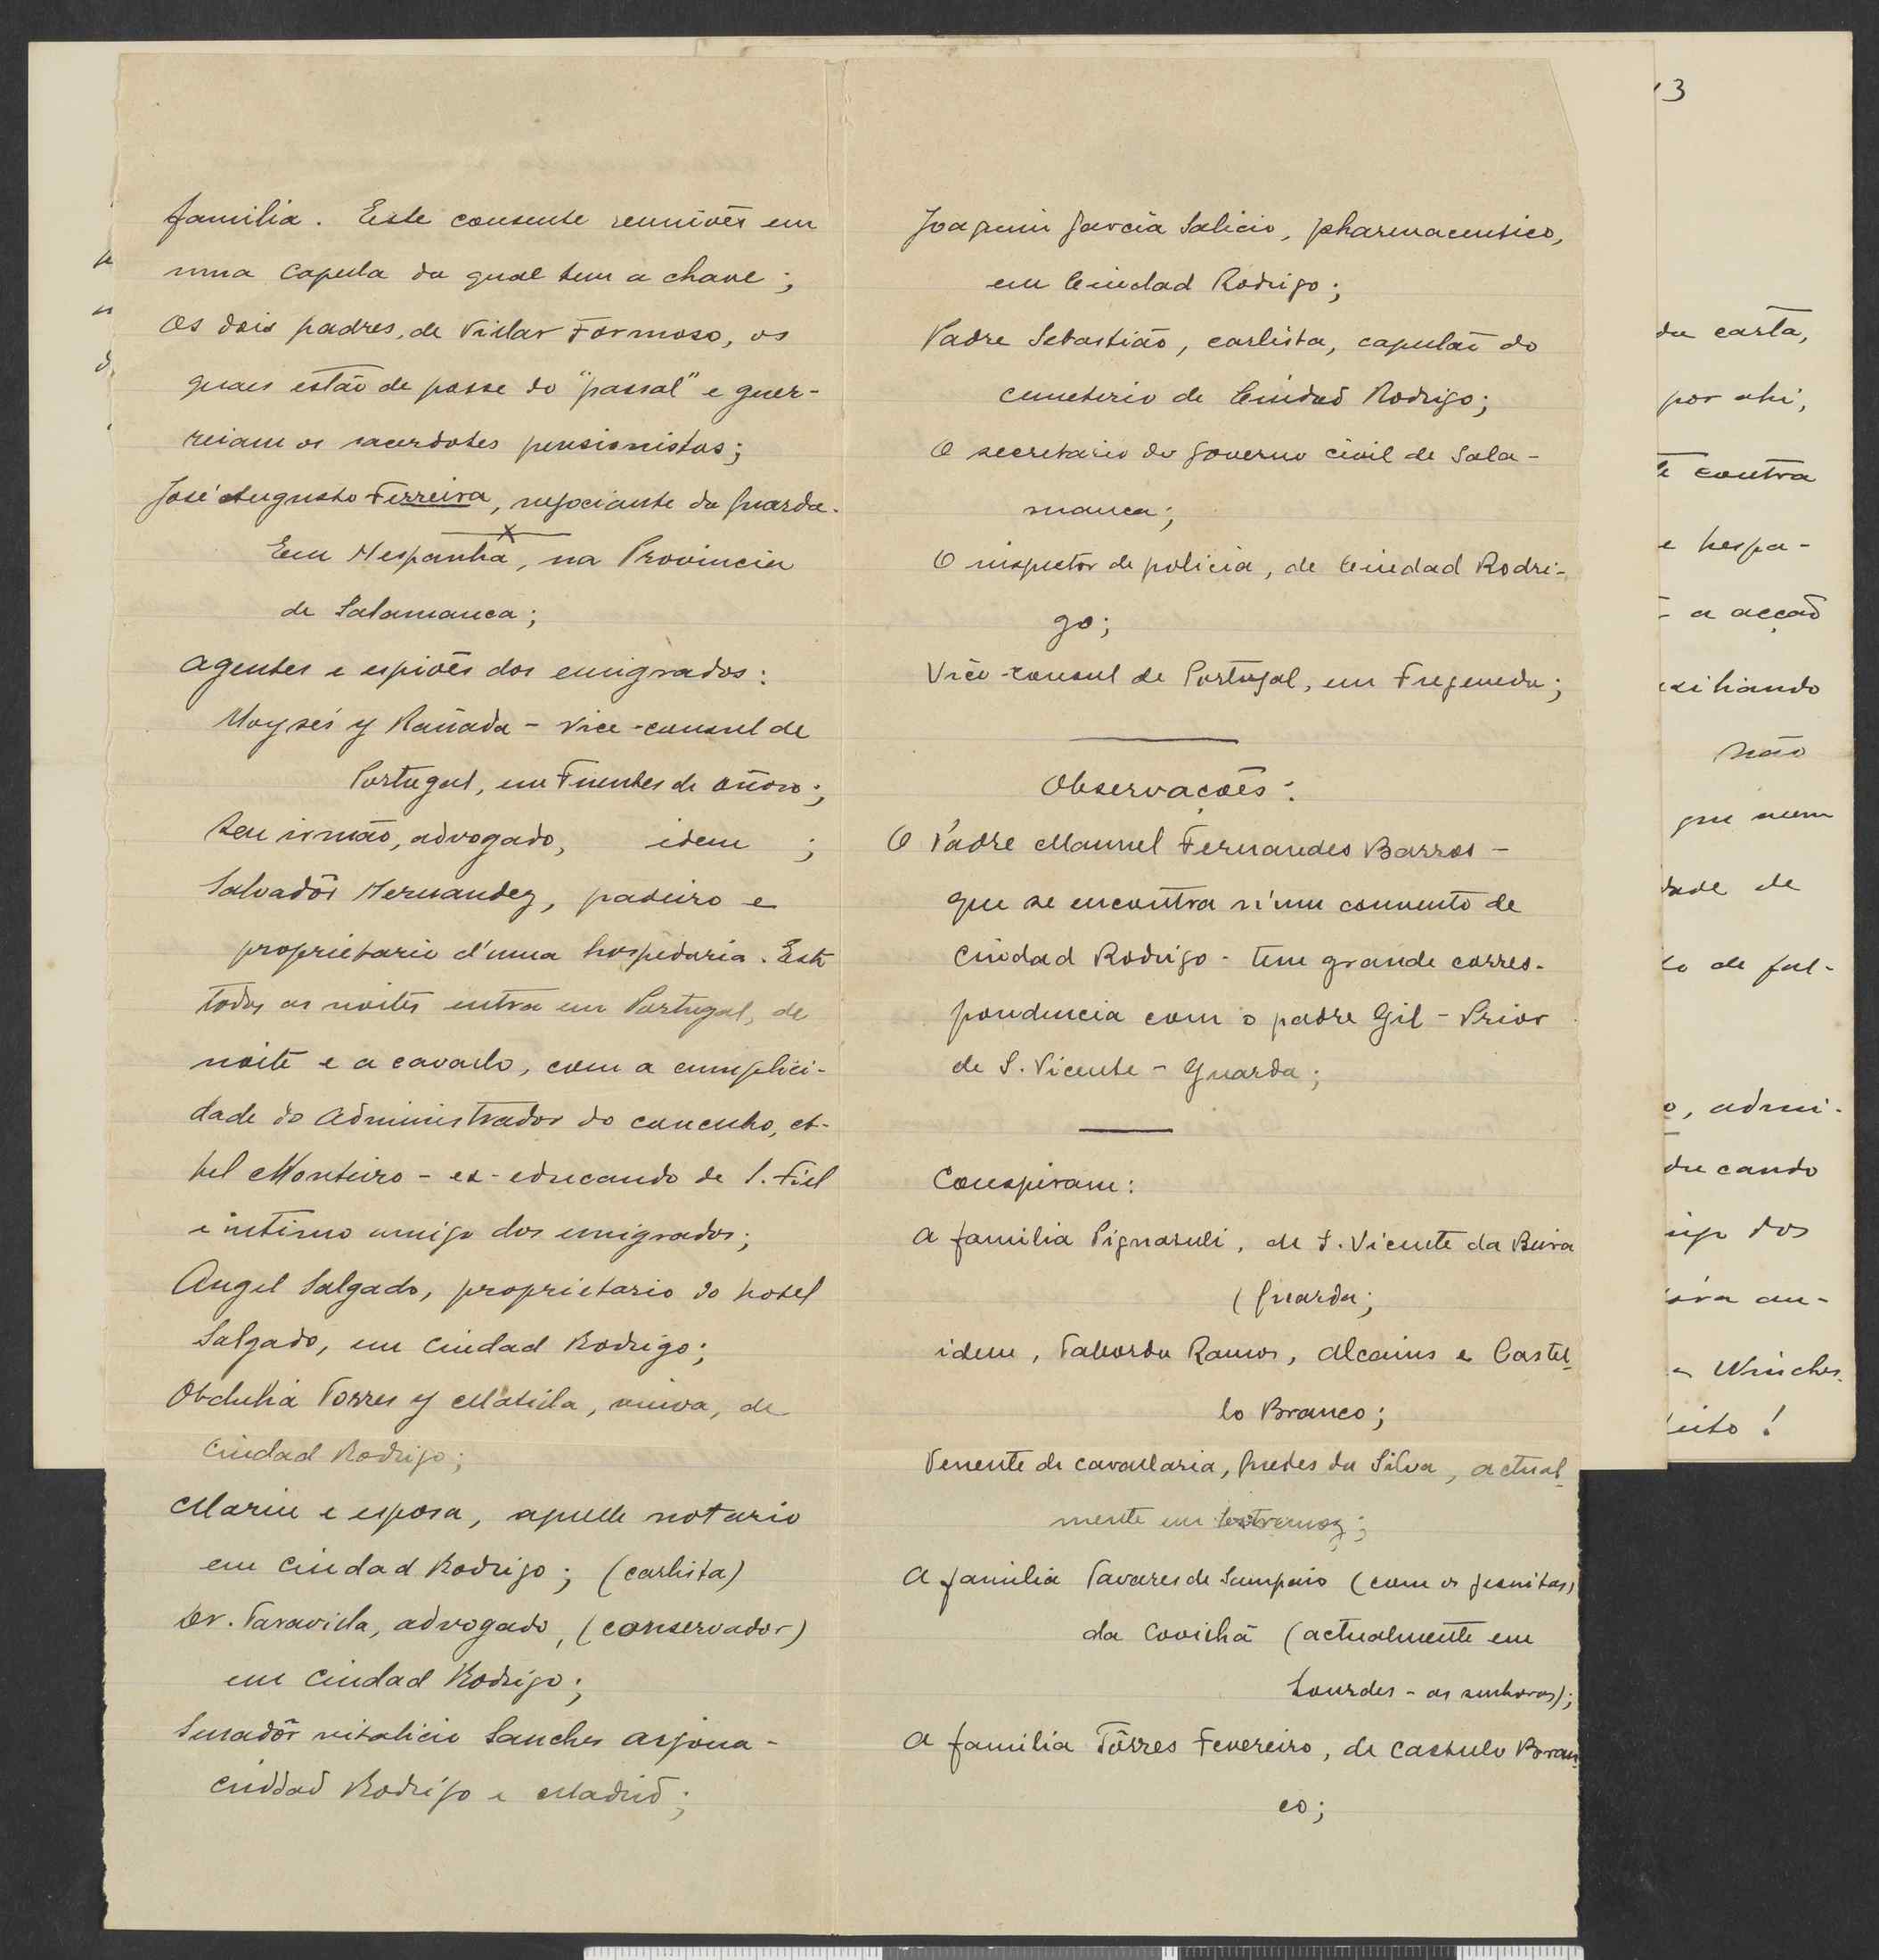 familia. Este consente reuniões em
uma capela da qual tem a chave;
Os dois padres, de Villar Formoso, os
quaes estão de posse do "passal" e guer-
reiam os sacerdotes pensionistas;
José Augusto Ferreira, negociante da Guarda.
x
Em Hespanha, na Provincia
de Salamanca;
Agentes e espiões dos emigrados:
Moysés y Rañada - Vice-consul de
Portugal, em Fuentes de Oñoro;
Seu irmão, advogado, idem ;
Salvadôr Hernandez, padeiro e
proprietario d'uma hospedaria. Este
todas as noites entra em Portugal, de
noite e a cavallo, com a cumplici-
dade do Administrador do concelho, A-
bel Monteiro - ex-educando de S. Fiel
e intimo amigo dos emigrados;
Angel Salgado, proprietario do hotel
Salgado, em Ciudad Rodrigo;
Obdulia Torres y Matilla, viuva, de
Ciudad Rodrigo;
Marin e esposa, aquelle notario
em Ciudad Rodrigo; (carlista)
Dr. Taravilla, advogado, (conservador)
em Ciudad Rodrigo;
Senadôr vitalicio Sanches Arjona -
Ciudad Rodrigo e Madrid;
Joaquim Garcia Salicio, pharmaceutico,
em Ciudad Rodrigo;
Padre Sebastião, carlista, capelão do
cemeterio de Ciudad Rodrigo;
O secretario do Governo civil de Sala-
manca;
O inspector de policia, de Ciudad Rodri-
go;
Vice-consul de Portugal, em Fregeneda;
Observações:
O Padre Manuel Fernandes Barros -
que se encontra n'um convento de
Ciudad Rodrigo - tem grande corres-
pondencia com o padre Gil - Prior
de S. Vicente - Guarda;
Conspiram:
A familia Pignatelli, de S. Vicente da Beira
(Guarda;
idem, Taborda Ramos, Alcains e Castel-
lo Branco;
Tenente de cavallaria, Guedes da Silva, actual-
mente em Extremoz;
A familia Tavares de Sampaio (com os jesuitas)
da Covilhã (actualmente em
Lourdes - as senhoras);
A familia Tôrres Fevereiro, de Castello Bran-
co;
3
da carta,
por ahi,
contra
e hespa-
a acção
xiliando
não
que num
dade de
lo de fal-
o, admi-
ducando
migo dos
óra au-
Winches
eito!